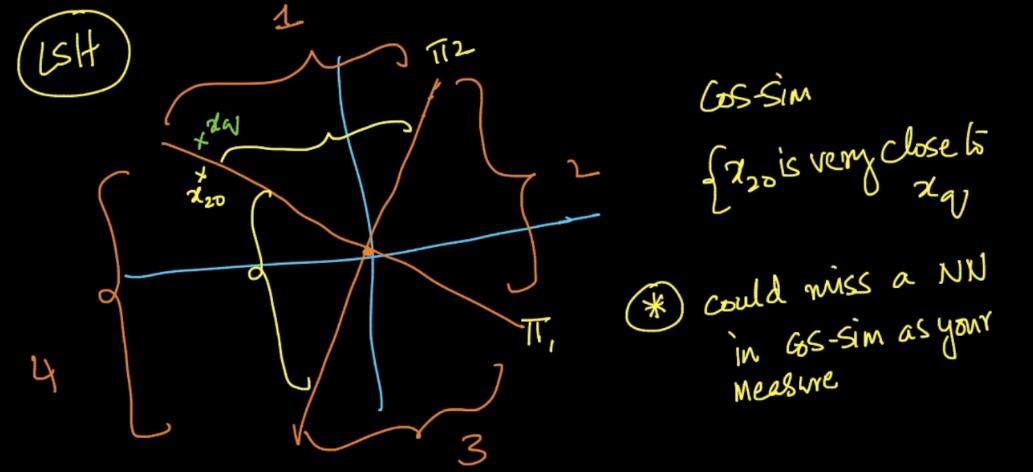 LSH
1
π2
xq
x20
2
π1
3
4
Cos-Sim
{x20 is very close to
xq
* could miss a NN
in Cos-sim as your
Measure